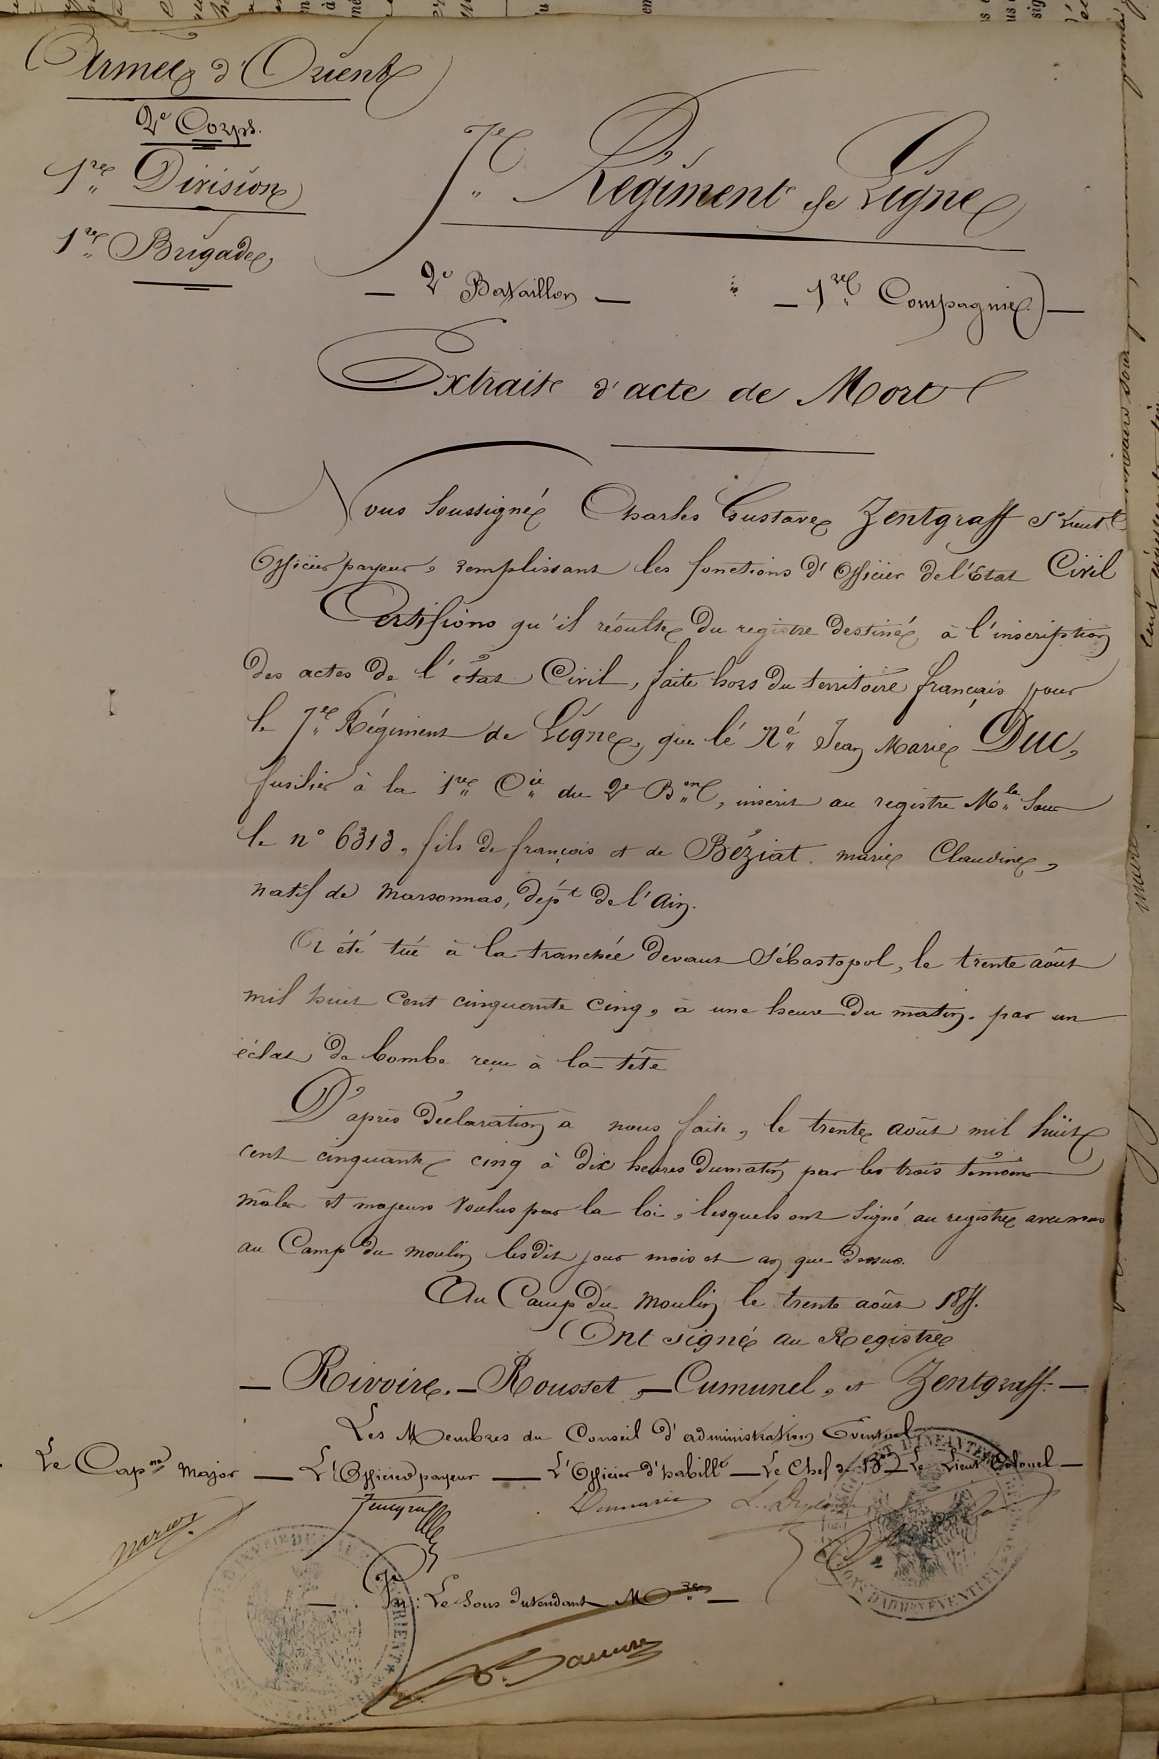 Armée d'Orient
2e Corps.
1re Division
1re Brigade
7e Régiment de Ligne
2e Bataillon 1re Compagnie
Extrait d'acte de Mort
Nous Soussigné Charles Gustave Zentgraff Ss Lieutt
Officier payeur, remplissant les fonctions d'Officier de l'Etat Civil
Certifions qu'il résulte du registre destiné à l'inscription
des actes de l'état Civil, faite hors du territoire français pour
le 7e Régiment de Ligne, que le Né Jean Marie Duc,
fusilier à la 1re Cie du 2e Bon, inscrit au registre Mle Sous
le n° 6313, fils de françois et de Béziat marie Claudine,
natif de Marsonnas, dépt de l'Ain.
A été tué à la tranchée devant Sébastopol, le trente août
mil huit Cent cinquante cinq, à une heure du matin, par un
éclat de bombe reçu à la tête
D'après déclaration à nous faite, le trente août mil huit
cent cinquante cinq à dix heures du matin par les trois témoins
mâles et majeurs voulus par la loi, lesquels ont signé au registre avec nous
au Camp du moulin lesdit jour mois et an que dessus.
Au Camp du Moulin le trente août 1855.
Ont signé au Registre
Rivoire, Rousset, Cumunel, et Zentgraff.
Les Membres du Conseil d'administration Eventuel
Le Capne Major L'Officier payeur L'Officier d'habillt Le Chef de Bon Le Lieut Colonel
Zentgraff
Pr: Le Sous Intendant Mre
ORIENT